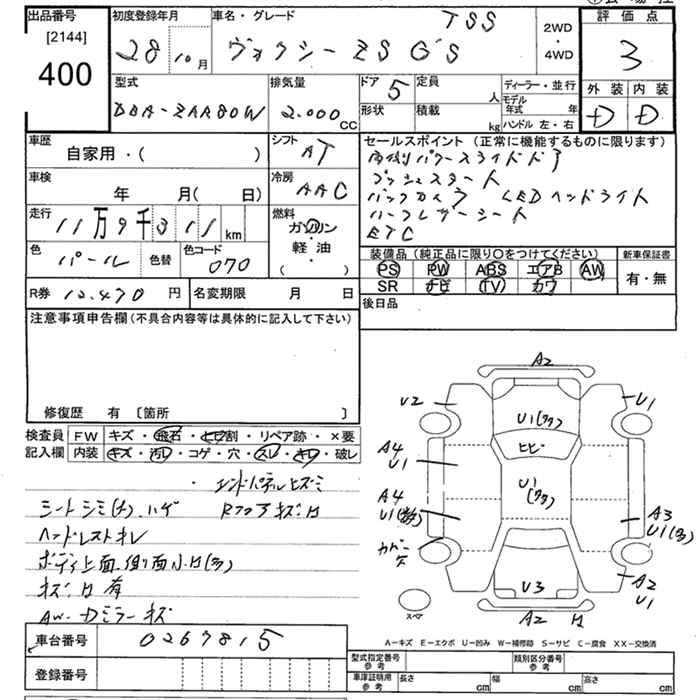 出品番号
[2144]
400
初度登録年月
28年 10月
車名・グレード
TSS
ヴォクシー ZS G'S
2WD
・
4WD
評価点
3
型式
DBA-ZRR80W
排気量
2.000
CC
ドア
5
形状
定員
人
積載
kg
ディーラー・並行
モデル年式 年
ハンドル 左・右
外装 内装
D D
車歴
自家用・( )
シフト
AT
車検
年 月( 日)
冷房
AAC
走行
11万9千311km
燃料
ガソリン
軽・油
( ・ )
色
パール
色替
色コード
070
R券 12.470 円
名変期限 月 日
セールスポイント (正常に機能するものに限ります)
両側パワースライドドア
プッシュスタート
バックカメラ LEDヘッドライト
ハーフレザーシート
ETC
装備品 (純正品に限り〇をつけてください)
PS PW ABS エアB AW
SR ナビ TV カワ
新車保証書
有・無
後日品
注意事項申告欄 (不具合内容等は具体的に記入して下さい)
修復歴 有 〔箇所 〕
検査員記入欄
FW キズ・飛石・ヒビ割・リペア跡・×要
内装 キズ・汚レ・コゲ・穴・スレ・キレ・破レ
・エンドパネルヒズミ
シートシミ(大)、ハゲ
Rフロアキズサ
ヘッドレストキレ
ボディ上面、側面小サ(多)
キズ・サ有
AW・Dミラーキズ
A2
U2
U1
U1(多)
ヒビ
A4
U1
U1
(多)
A4
U1(多)
A3
U1(多)
カバーキズ
A2
U1
U3
A2 サ
スペア
A-キズ E-エクボ U-凹み W-補修跡 S-サビ C-腐食 XX-交換済
車台番号
0267815
登録番号
型式指定番号
参考
類別区分番号
参考
車庫証明用
参考
長さ cm
幅 cm
高さ cm